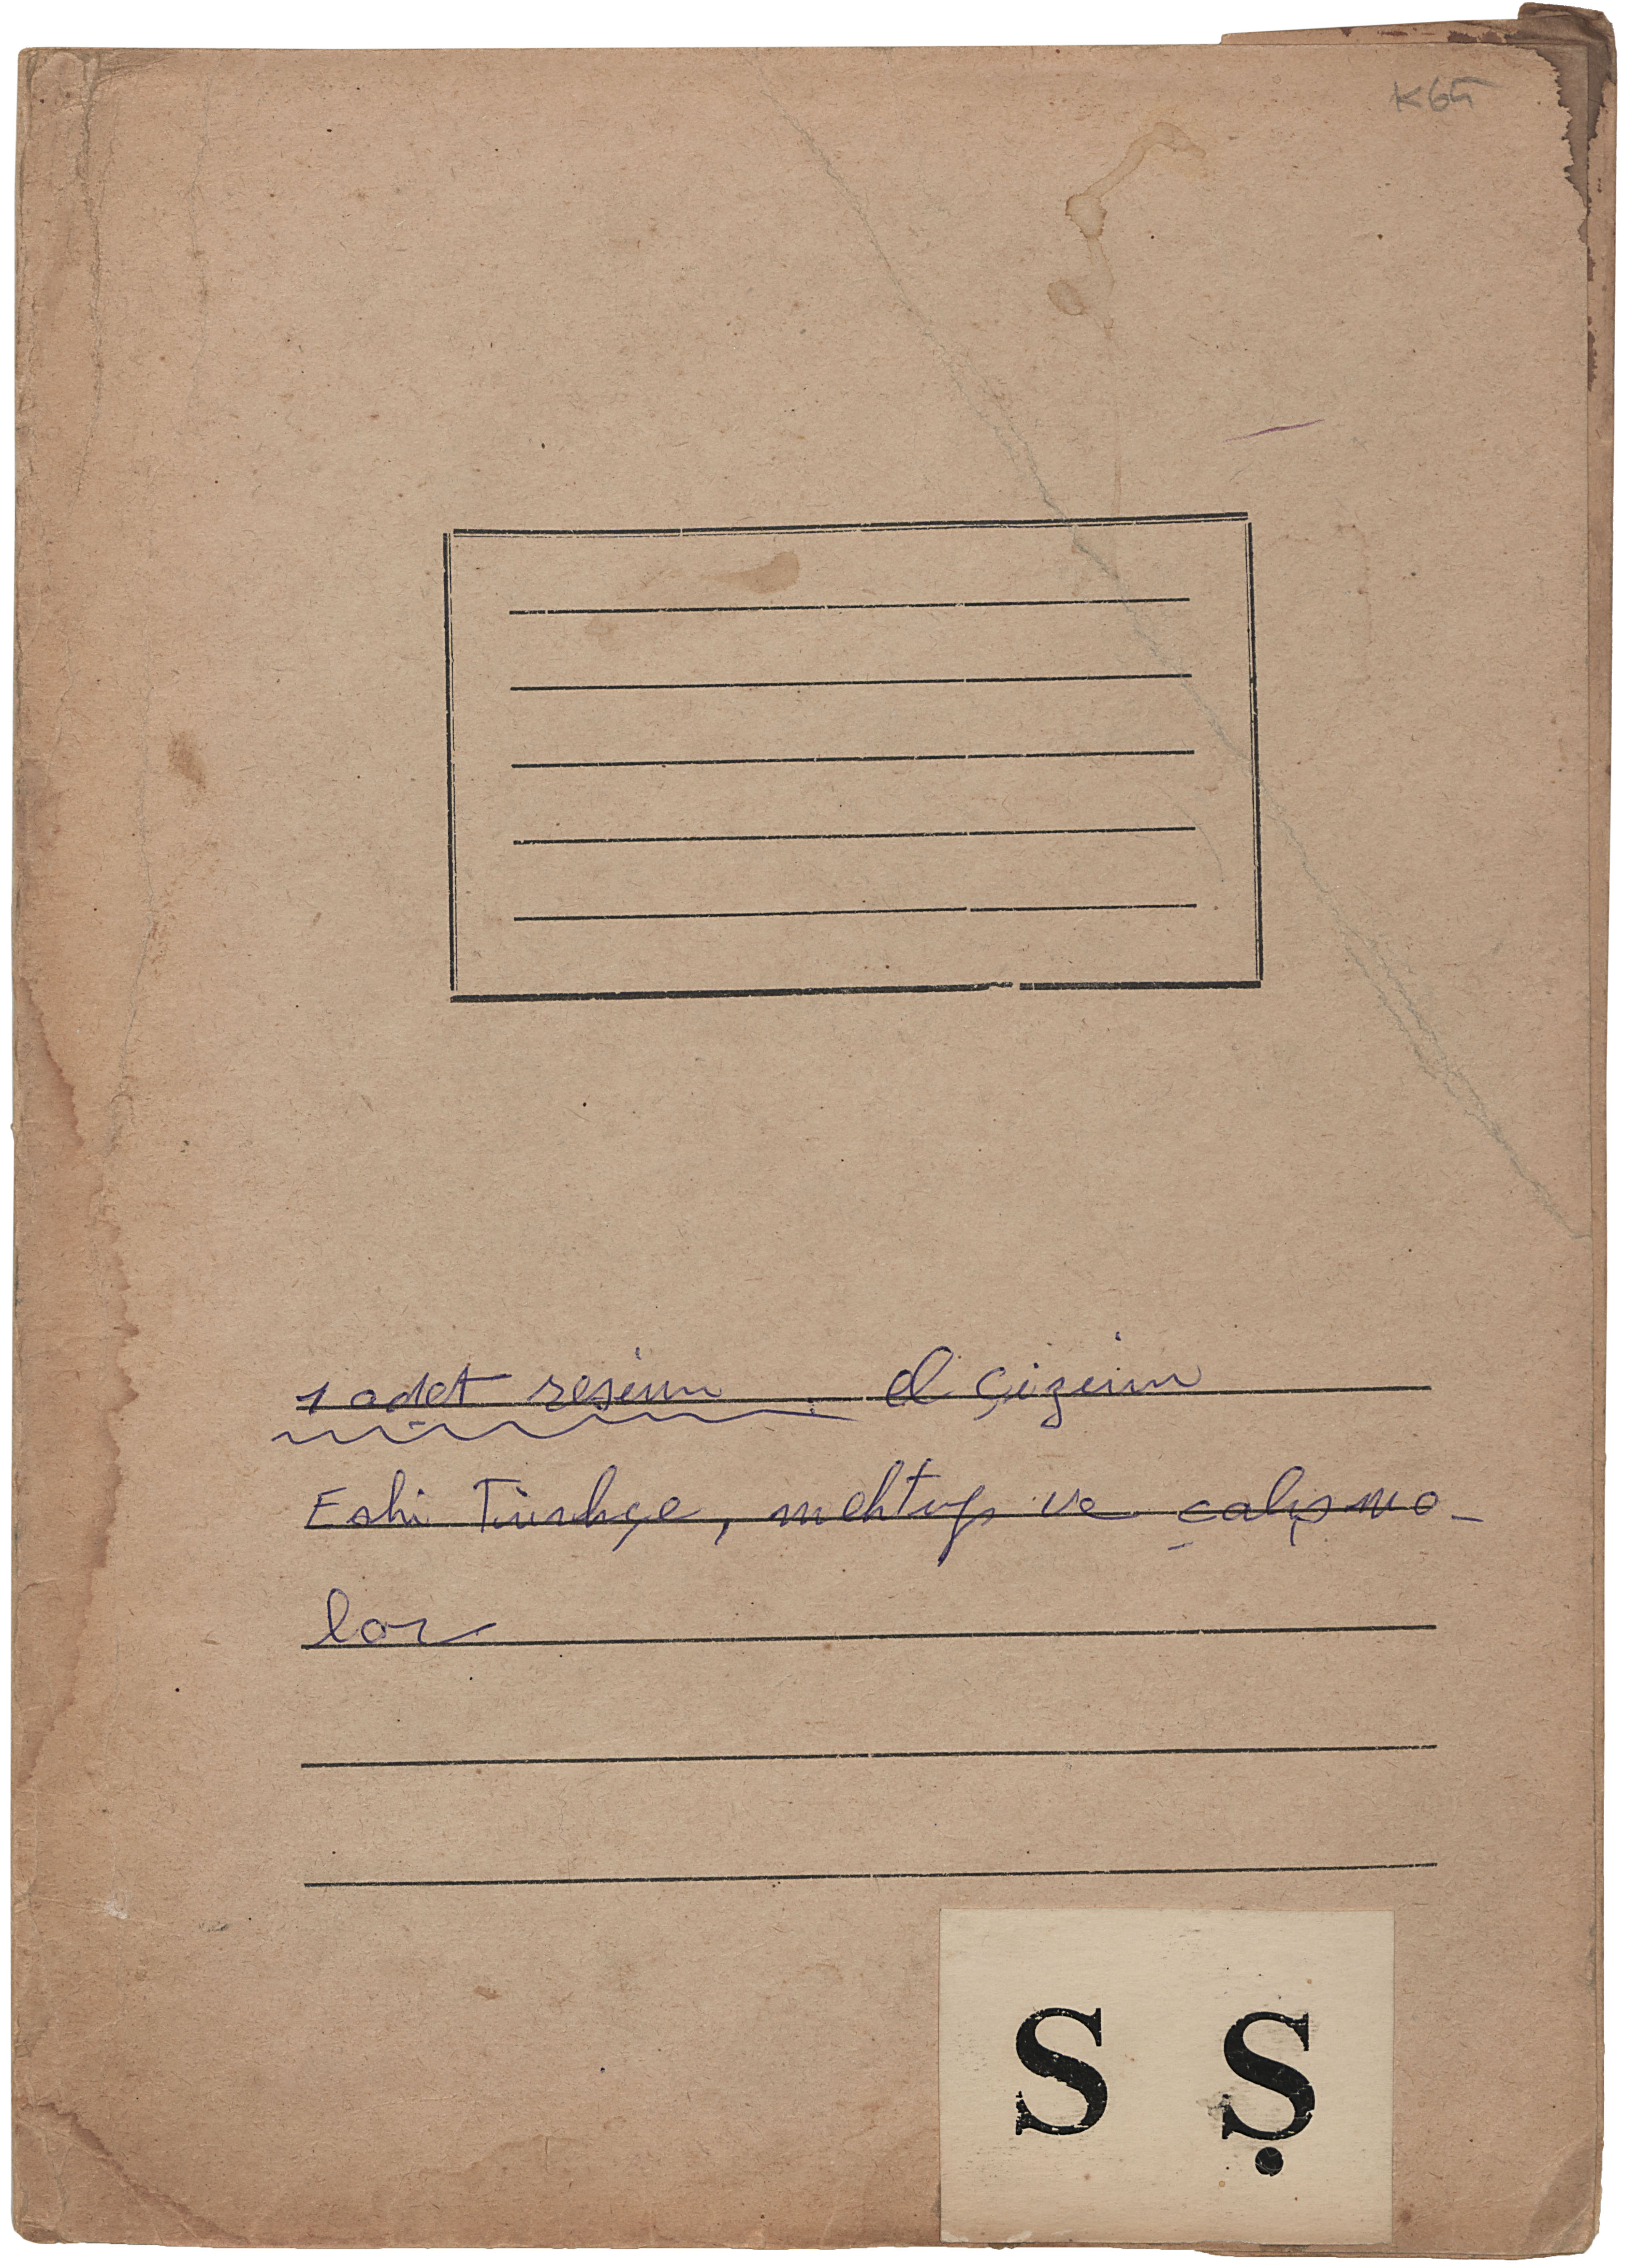 1 adet resim el çizim
Eski Türkçe, mektup ve çalışma-
lar
S Ş